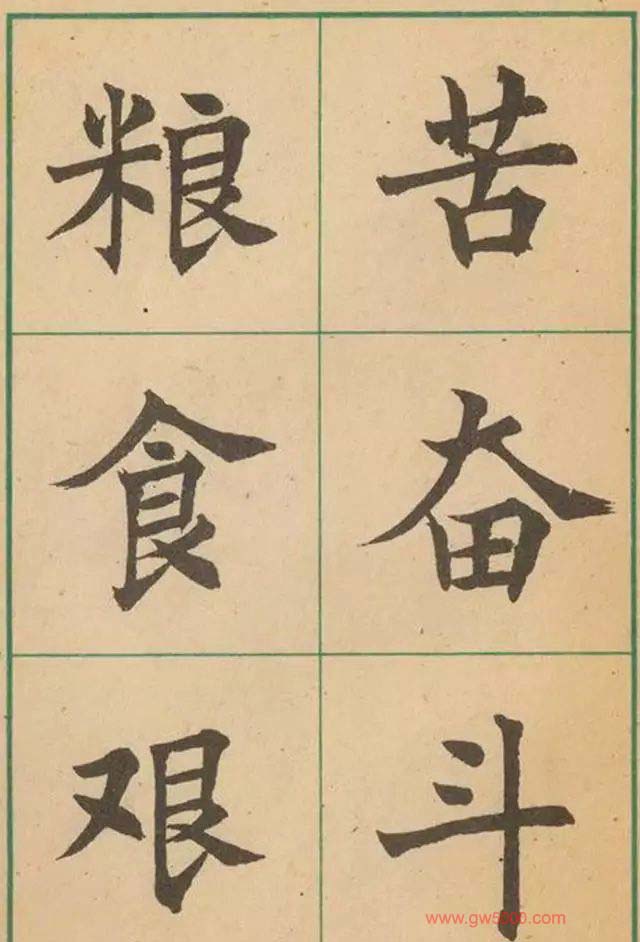 苦奋斗
粮食艰
www.gw5000.com